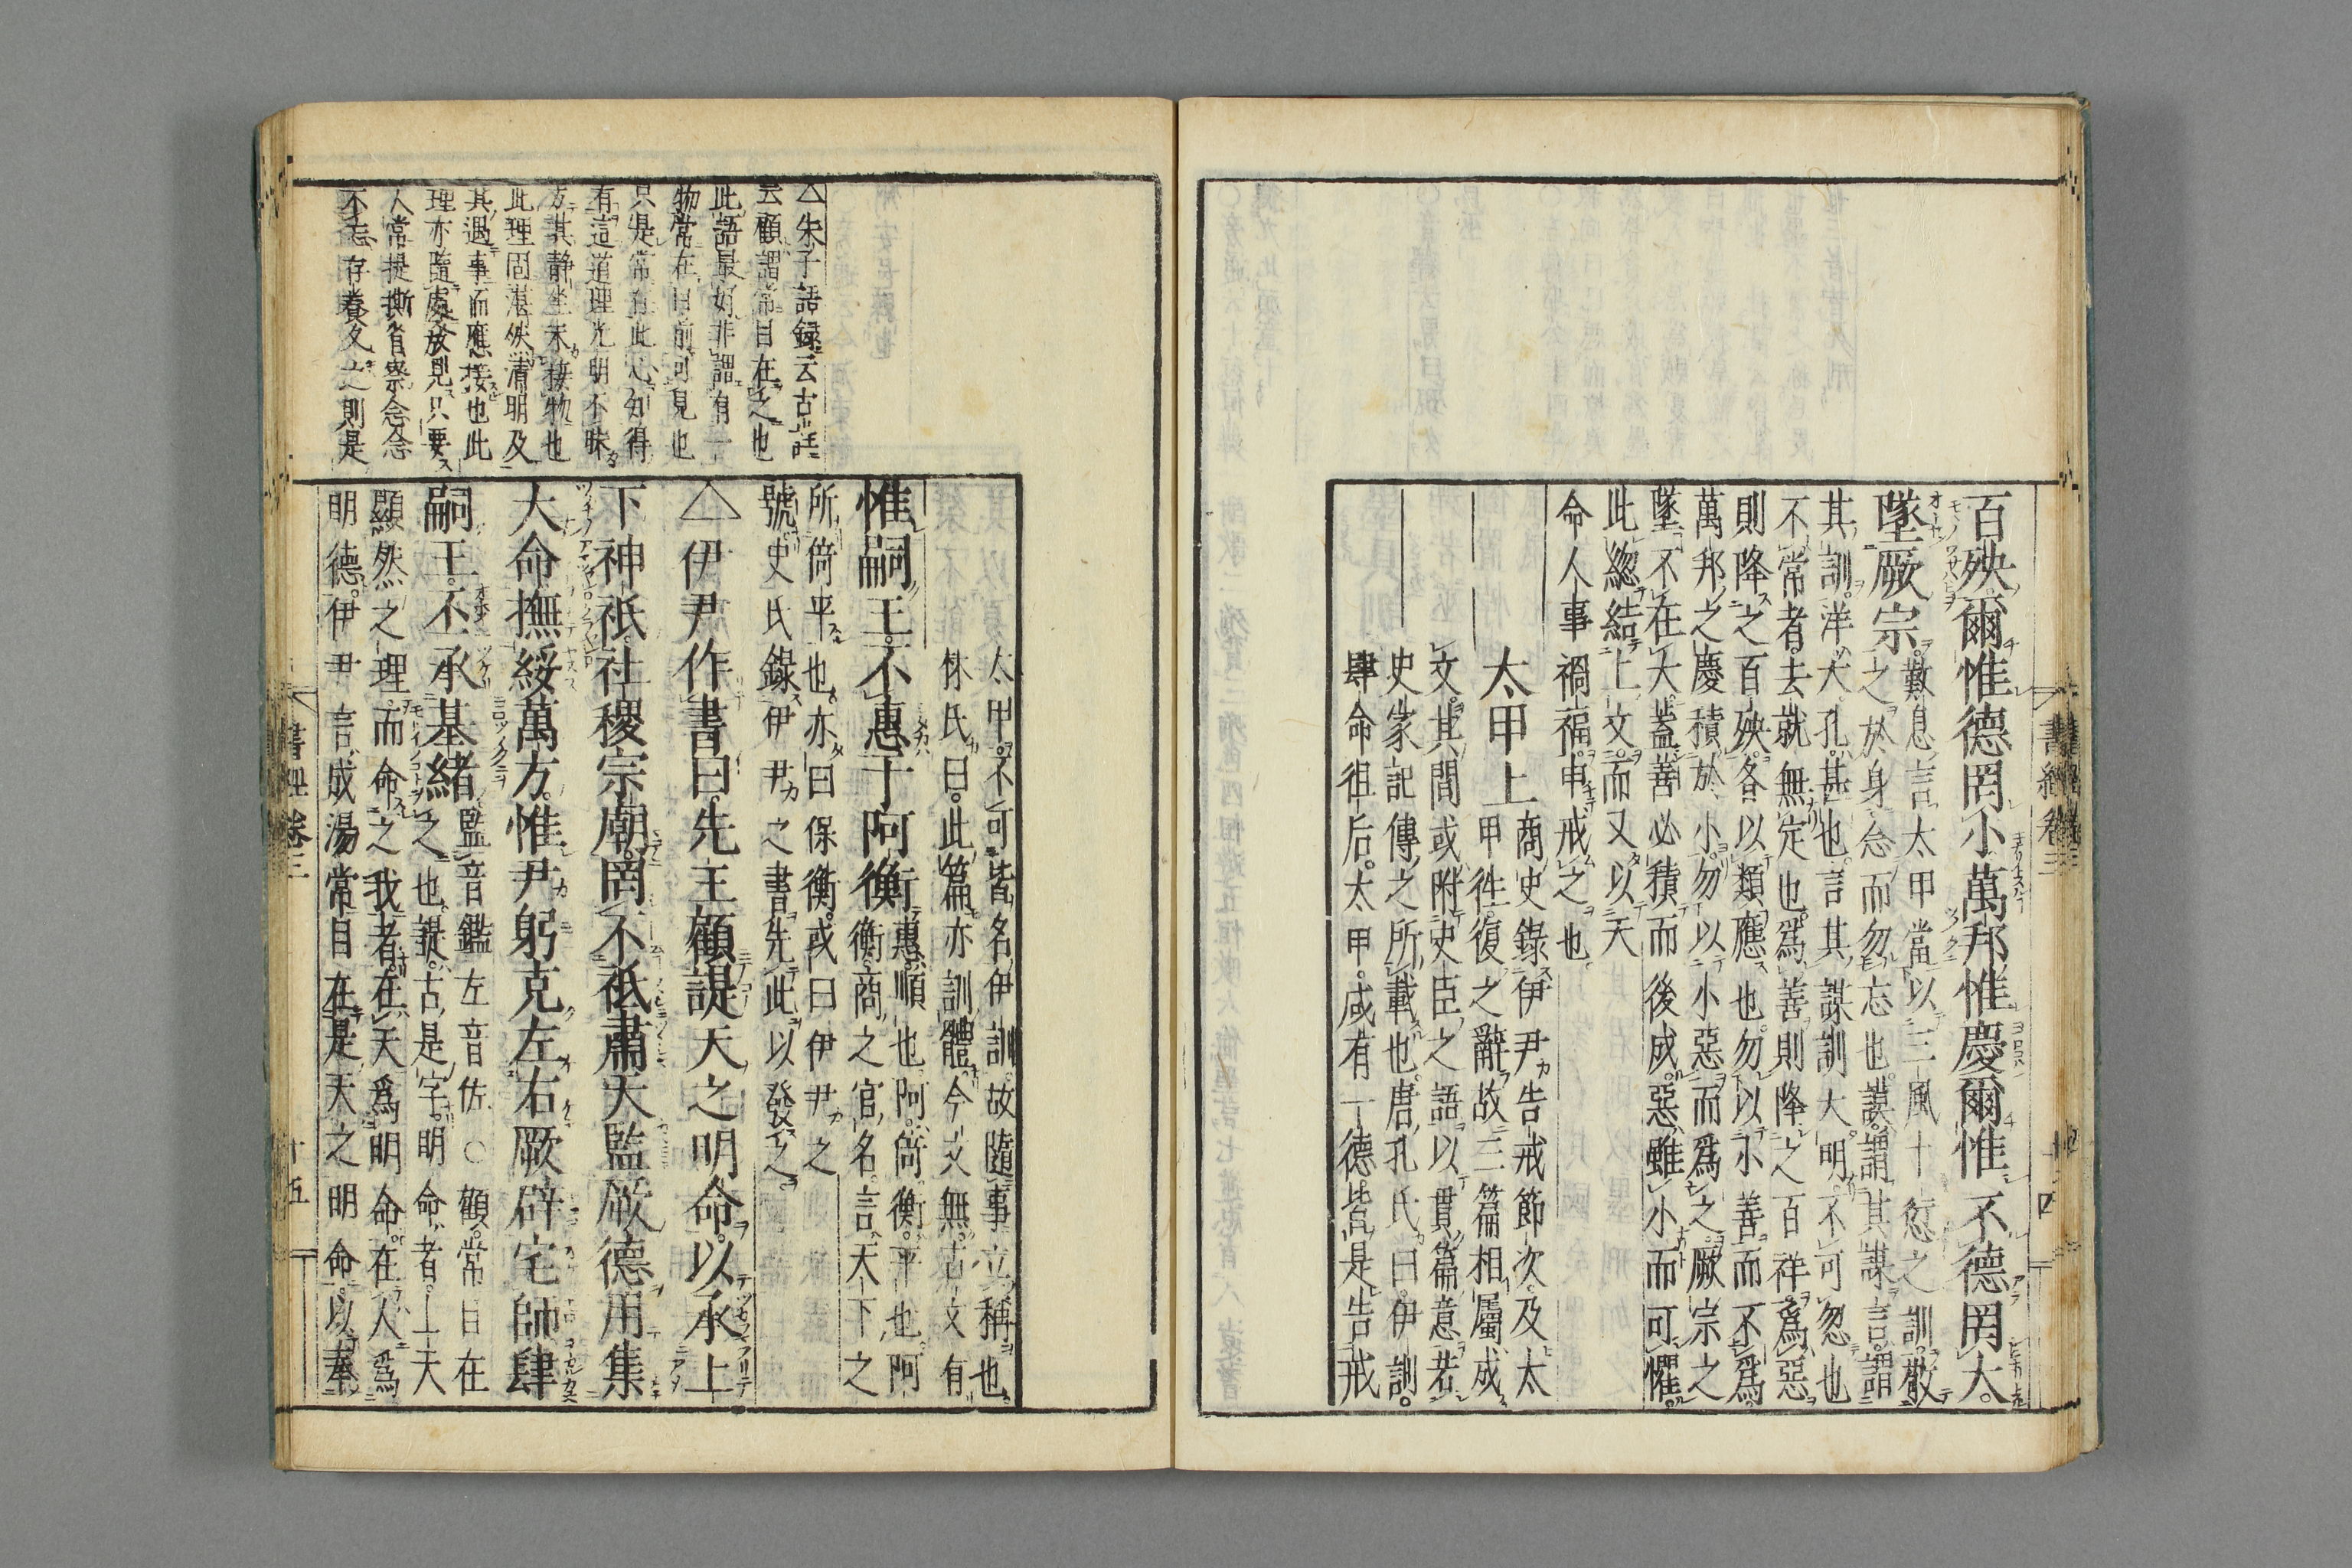 百殃爾惟德罔小萬邦惟慶爾惟不德罔大
墜厥宗歎息言太甲當以三風十愆之訓敬
之於身念而勿忘也謨謂其謀言謂
其訓洋大孔甚也言其謀訓大明不可忽也
不常者去就無定也爲善則降之百祥爲惡
則降之百殃各以類應也勿以小善而不爲
萬邦之慶積於小勿以小惡而爲之厥宗之
墜不在大蓋善必積而後成惡雖小而可懼
此緫結上文而又以天
命人事禍福申戒之也
太甲上商史錄伊尹告戒節次及太
甲徃復之辭故三篇相屬成
文其間或附史臣之語以貫篇意若
史家記傳之所載也唐孔氏曰伊訓
肆命徂后太甲咸有一德皆是告戒
書經卷三
十四
太甲不可皆名伊訓故隨事立稱也
林氏曰此篇亦訓體今文無古文有
惟嗣王不惠于阿衡惠順也阿倚衡平也阿
衡商之官名言天下之
所倚平也亦曰保衡或曰伊尹之
號史氏錄伊尹之書先此以發之
△伊尹作書曰先王顧諟天之明命以承上
下神祇社稷宗廟罔不祇肅天監厥德用集
大命撫綏萬方惟尹躬克左右厥辟宅師肆
嗣王丕承基緒監音鑑左音佐○顧常目在
之也諟古是字明命者上天
顯然之理而命之我者在天爲明命在人爲
明德伊尹言成湯常目在是天之明命以奉
△朱子語録云古註
云顧謂常目在之也
此語最好非謂有一
物常在目前可見也
只是常存此心知得
有這道理光明不昧
方其静坐未接物也
此理固湛然清明及
其遇事而應接也此
理亦隨處發見只要
人常提撕省察念念
不忘存養久之則是
書經卷三
十五